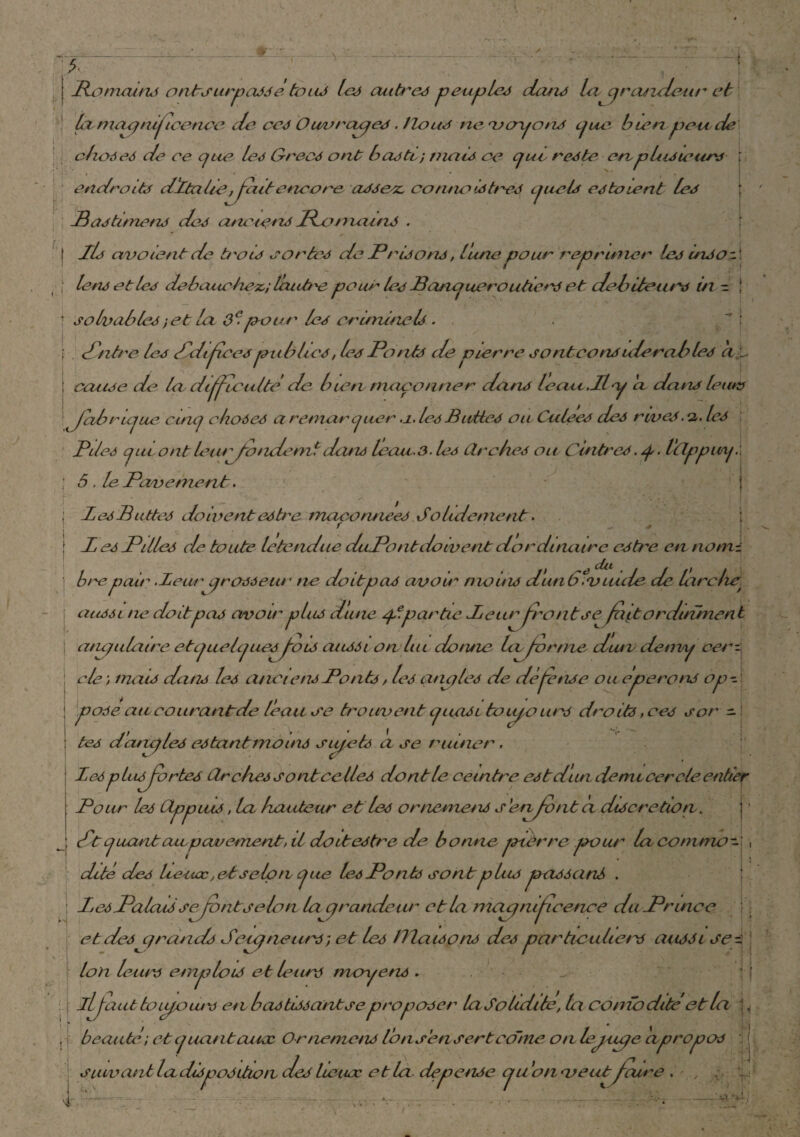 5.
Romains ont surpassé tous les autres peuples dans la grandeur et
la magnificence de ces Ouvrages. Nous ne voyons que bien peu de
choses de ce que les Grecs ont basti; mais ce qui reste en plusieurs
endroits d'Italie, fait encore assez connoistres quels estoient les
Bastimens des anciens Romains.
Ils avoient de trois sortes de Prisons, l'une pour reprimer les inso=
lens et les debauchez; l'autre pour les Banqueroutiers et debiteurs in =
solvables; et la 3.e pour les criminels.
Entre les Edifices publics, les Ponts de pierre sont considerables à
cause de la difficulté de bien maçonner dans l'eau. Il y a dans leurs
fabrique cinq choses a remarquer .1. les Buttes ou Culées des rives. 2. les
Piles qui ont leur fondem.t dans l'eau. 3. les Arches ou Cintres. 4. l'Appuy.
5. le Pavement.
Les Buttes doivent estre maçonnées Solidement.
Les Pilles de toute l'etendue du Pont doivent d'ordinaire estre en nom=
bre pair. Leur grosseur ne doit pas avoir moins d'un 6.e du vuide de l'arche
aussi ne doit pas avoir plus d'une 4.e partie Leur front se fait ordinment
angulaire et quelques fois aussi on lui donne la forme d'un demy cer=
cle; mais dans les anciens Ponts, les angles de défense ou éperons op=
posé au courant de l'eau se trouvent quasi toujours droits, ces sor =
tes d'angles estant moins sujets à se ruiner.
Les plus fortes Arches sont celles dont le ceintre est d'un demi cercle entier
Pour les Appuis, la hauteur et les ornemens s'en font à discretion.
Et quant au pavement, il doit estre de bonne pierre pour la commo=
dité des lieux, et selon que les Ponts sont plus passans.
Les Palais se font selon la grandeur et la magnificence du Prince
et des grands Seigneurs; et les Maisons des particuliers aussi se=
lon leurs emplois et leurs moyens.
Il faut toujours en bastissant se proposer la Solidité, la comodité et la
beauté; et quant aux Ornemens l'on s'en sert côme on le juge à propos
suivant la disposition des lieux et la depense qu'on veut faire.